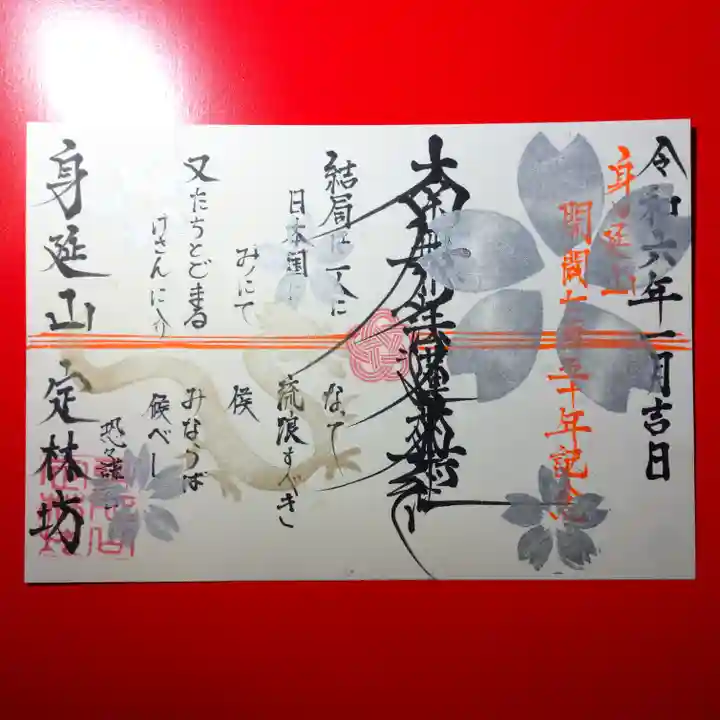 令和六年一月吉日
身延山
開闢七百五十年記念
南無妙法蓮華経
結局は一人に
なって
日本国に
流浪すべき
みにて
候
又たちとどまる
みならば
けさんに入
候べし
恐々謹言
身延山 定林坊